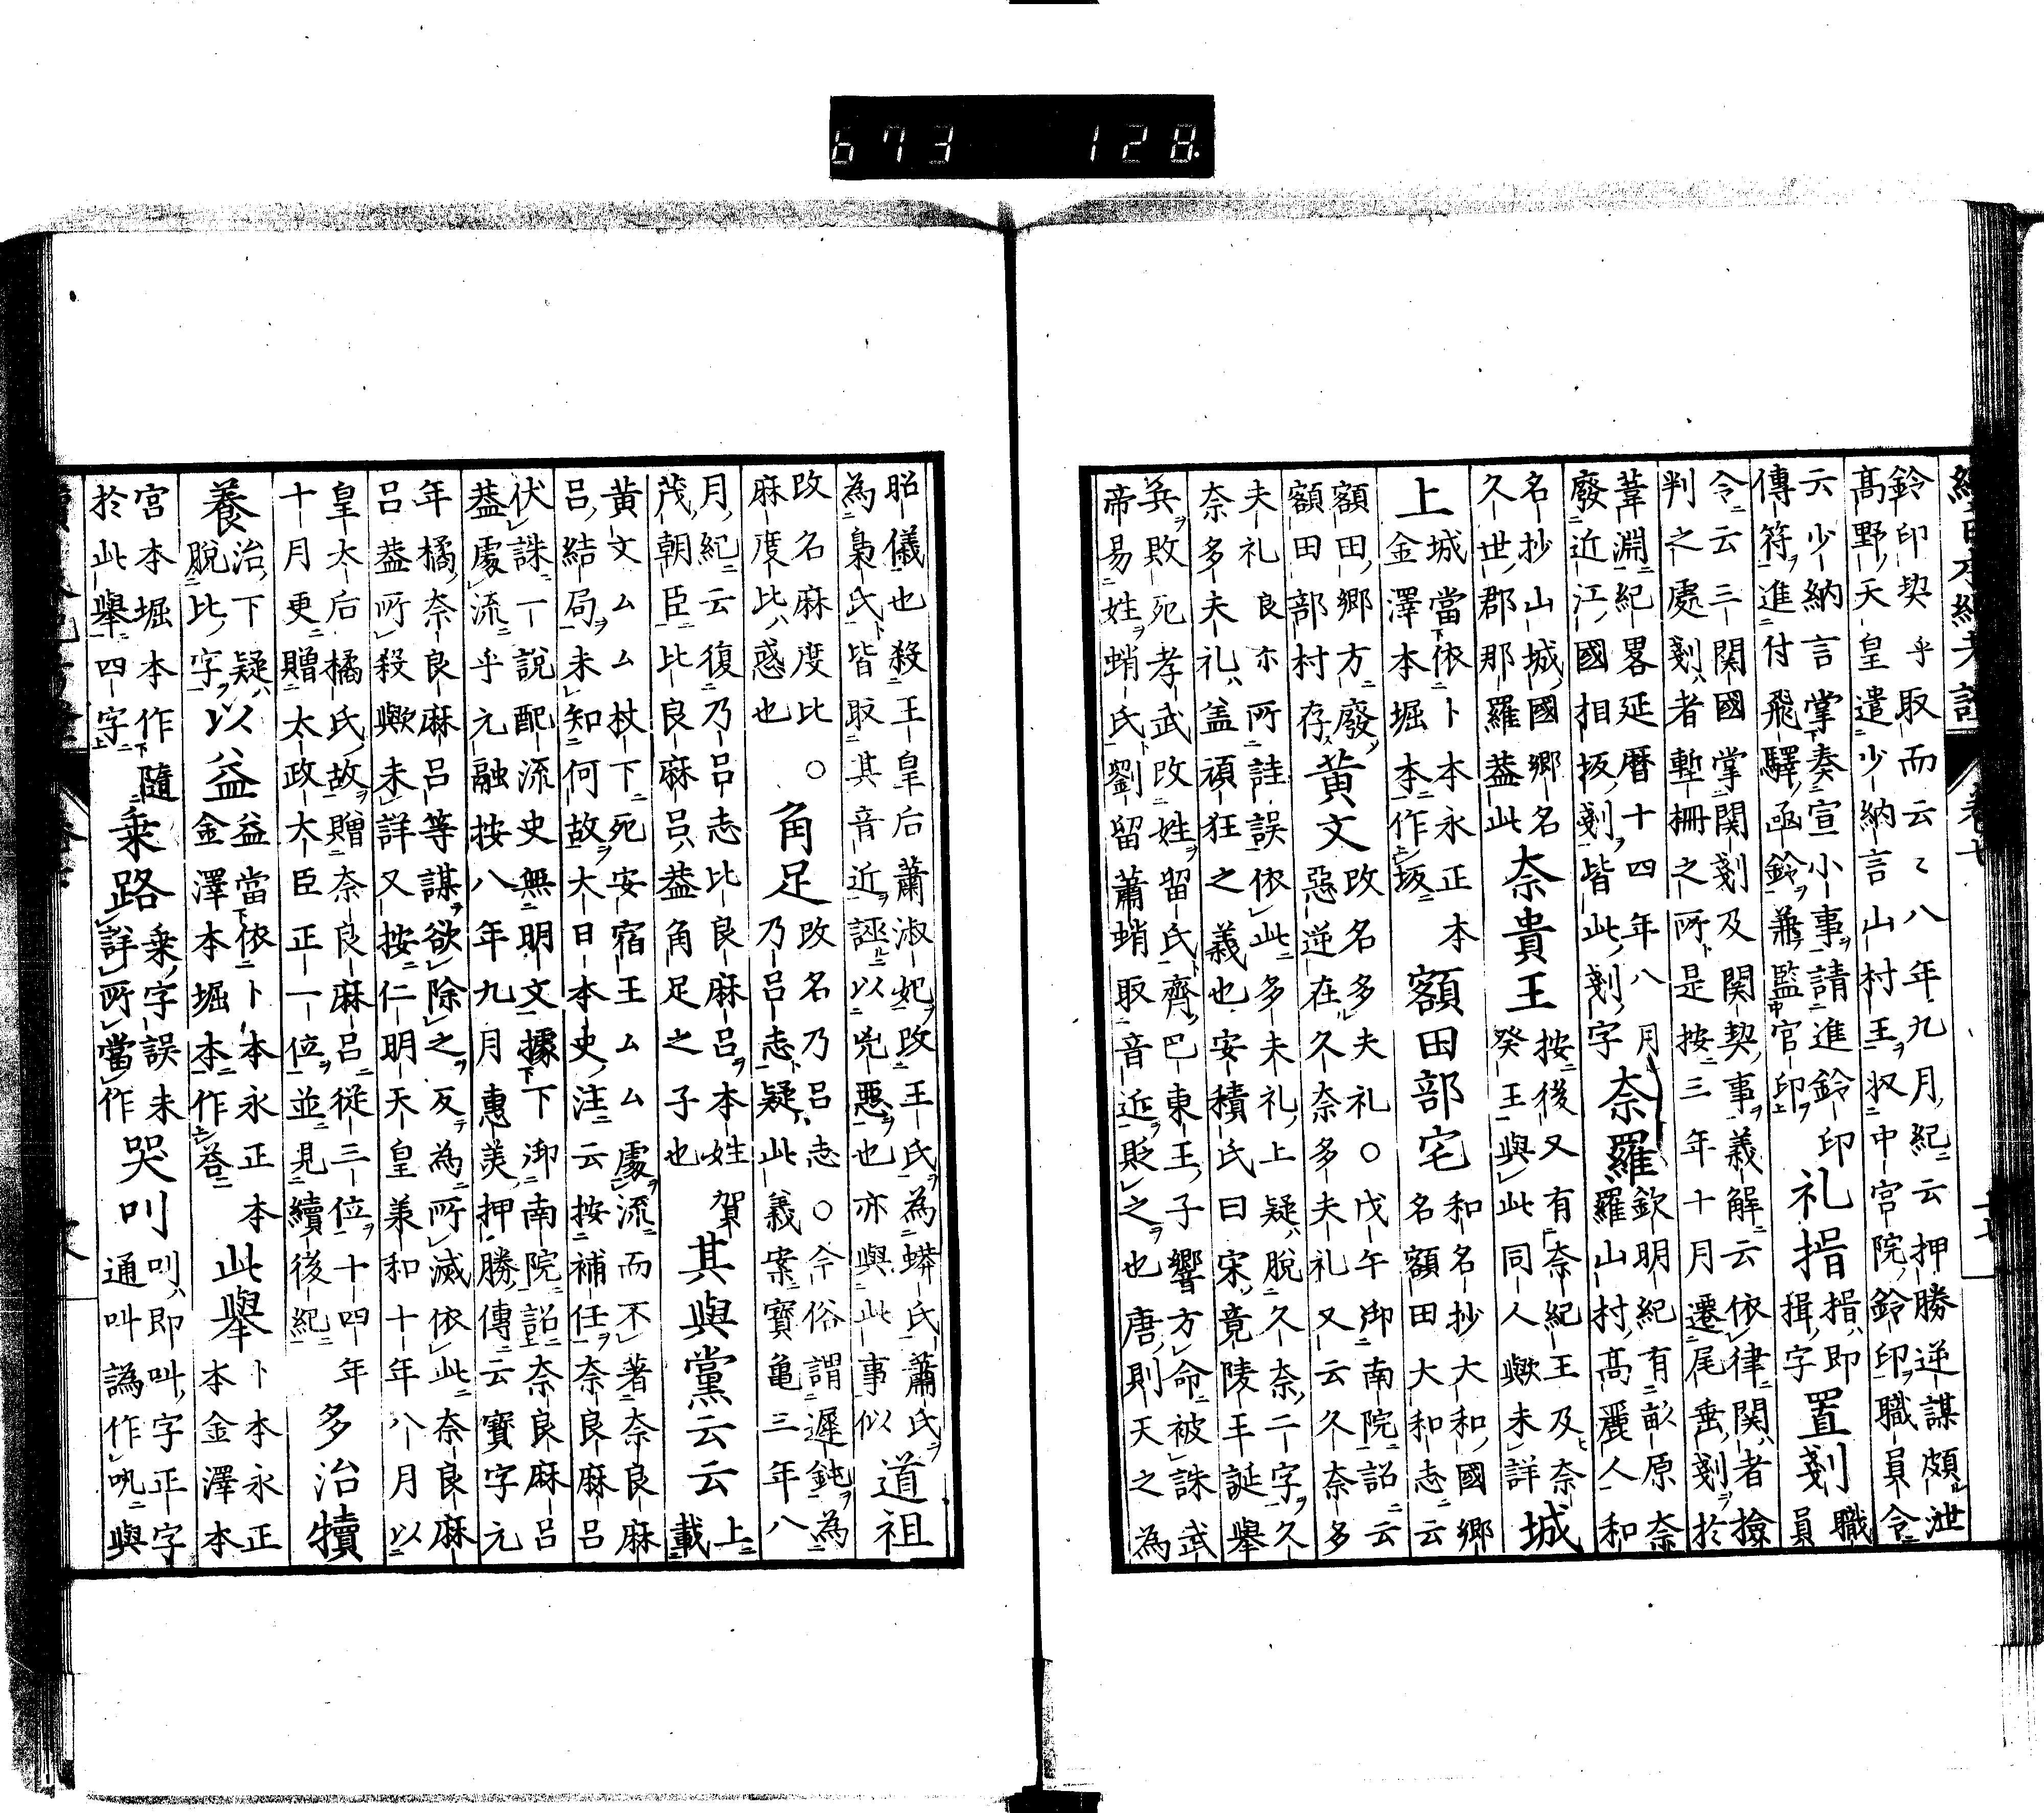 673 128
鈴印契乎取而云〻八年九月紀云押勝逆謀頗泄
高野天皇遣少納言山村王収中宮院鈴印職員令
云少納言掌奏宣小事請進鈴印
傳符進付飛驛函鈴兼監官印
礼揩
揩即
揖字
置剗
職
員
令云三関國掌関剗及関契事義解云依律関者撿
判之處剗者塹柵之所是按三年十月遷尾垂剗於
葦淵紀畧延暦十四年八月
廢近江國相坂剗皆此剗字
奈羅
欽明紀有畝原奈
羅山村高麗人和
名抄山城國郷名
久世郡那羅葢此
奈貴王
按後又有奈紀王及奈
癸王與此同人歟未詳
城
上
城當依卜本永正本
金澤本堀本作坂
額田部宅
和名抄大和國郷
名額田大和志云
額田郷方廢
額田部村存
黄文
改名多夫礼○戊午御南院詔云
惡逆在久奈多夫礼又云久奈多
夫礼良尓所詿誤依此多未礼上疑脱久奈二字久
奈多夫礼盖頑狂之義也安積氏曰宋竟陵王誕舉
兵敗死孝武改姓留氏齊巴東王子響方命被誅武
帝易姓蛸氏劉留蕭蛸取音近貶之也唐則天之為
昭儀也殺王皇后蕭淑妃改王氏為蟒氏蕭氏
為梟氏皆取其音近誣以兇惡也亦與此事似
道祖
改名麻度比○
麻度比惑也
角足
改名乃呂志○今俗謂遲鈍為
乃呂志疑此義案寶亀三年八
月紀云復乃呂志比良麻呂本姓賀
茂朝臣比良麻呂葢角足之子也
其與黨云云
上
載
黄文ムム杖下死安宿王ムム處流而不著奈良麻
呂結局未知何故大日本史注云按補任奈良麻呂
伏誅一說配流史無明文據下御南院詔奈良麻呂
葢處流乎元融按八年九月惠美押勝傳云寶字元
年橘奈良麻呂等謀欲除之反為所滅依此奈良麻
呂葢所殺歟未詳又按仁明天皇兼和十年八月以
皇太后橘氏故贈奈良麻呂從三位十四年
十月更贈太政大臣正一位並見續後紀
多治犢
養
治下疑
脱比字
以益
益當依卜本永正本
金澤本堀本作荅
此舉
卜本永正
本金澤本
宮本堀本作隨
於此舉四字
乗路
乗字誤未
詳所當作
哭㕦
㕦即叫字正字
通叫譌作吼與